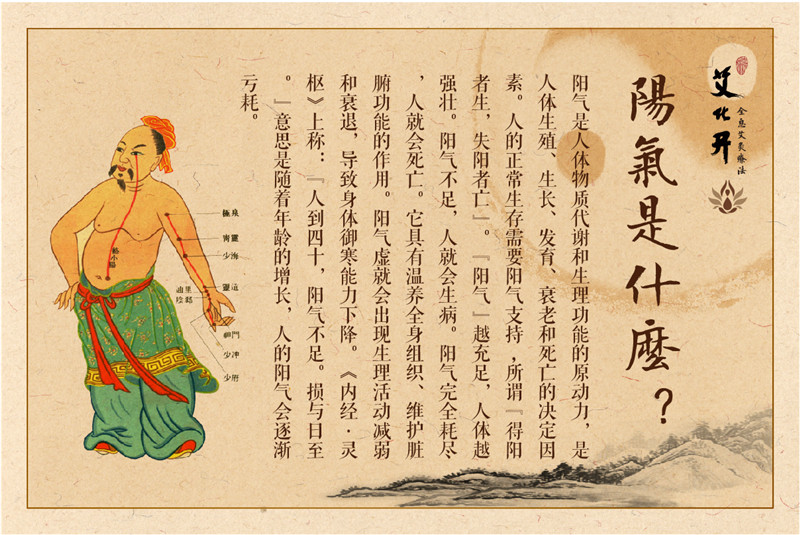 艾化开
全息艾灸療法
陽氣是什麼？
阳气是人体物质代谢和生理功能的原动力，是
人体生殖、生长、发育、衰老和死亡的决定因
素。人的正常生存需要阳气支持，所谓『得阳
者生，失阳者亡』。『阳气』越充足，人体越
强壮。阳气不足，人就会生病。阳气完全耗尽
，人就会死亡。它具有温养全身组织、维护脏
腑功能的作用。阳气虚就会出现生理活动减弱
和衰退，导致身体御寒能力下降。《内经·灵
枢》上称：『人到四十，阳气不足。损与日至
。』意思是随着年龄的增长，人的阳气会逐渐
亏耗。
極泉
青靈
少海
靈道
通里
神門
少冲
少府
絡小腸